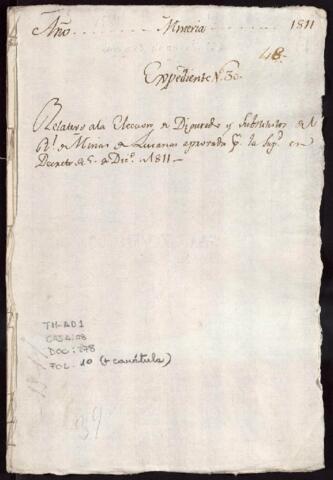 Año Mineria 1811
48.
Expediente N. 30.
Relativo a la Eleccion de Diputado y Substitutos del
Rl. de Minas de Lucanas aprovada pr. la Supd. en
Decreto de 5. de Dice. de 1811 —
TM-AD1
CAJA: 08
DOC: 378
FOL. 10 (+ carátula)
39